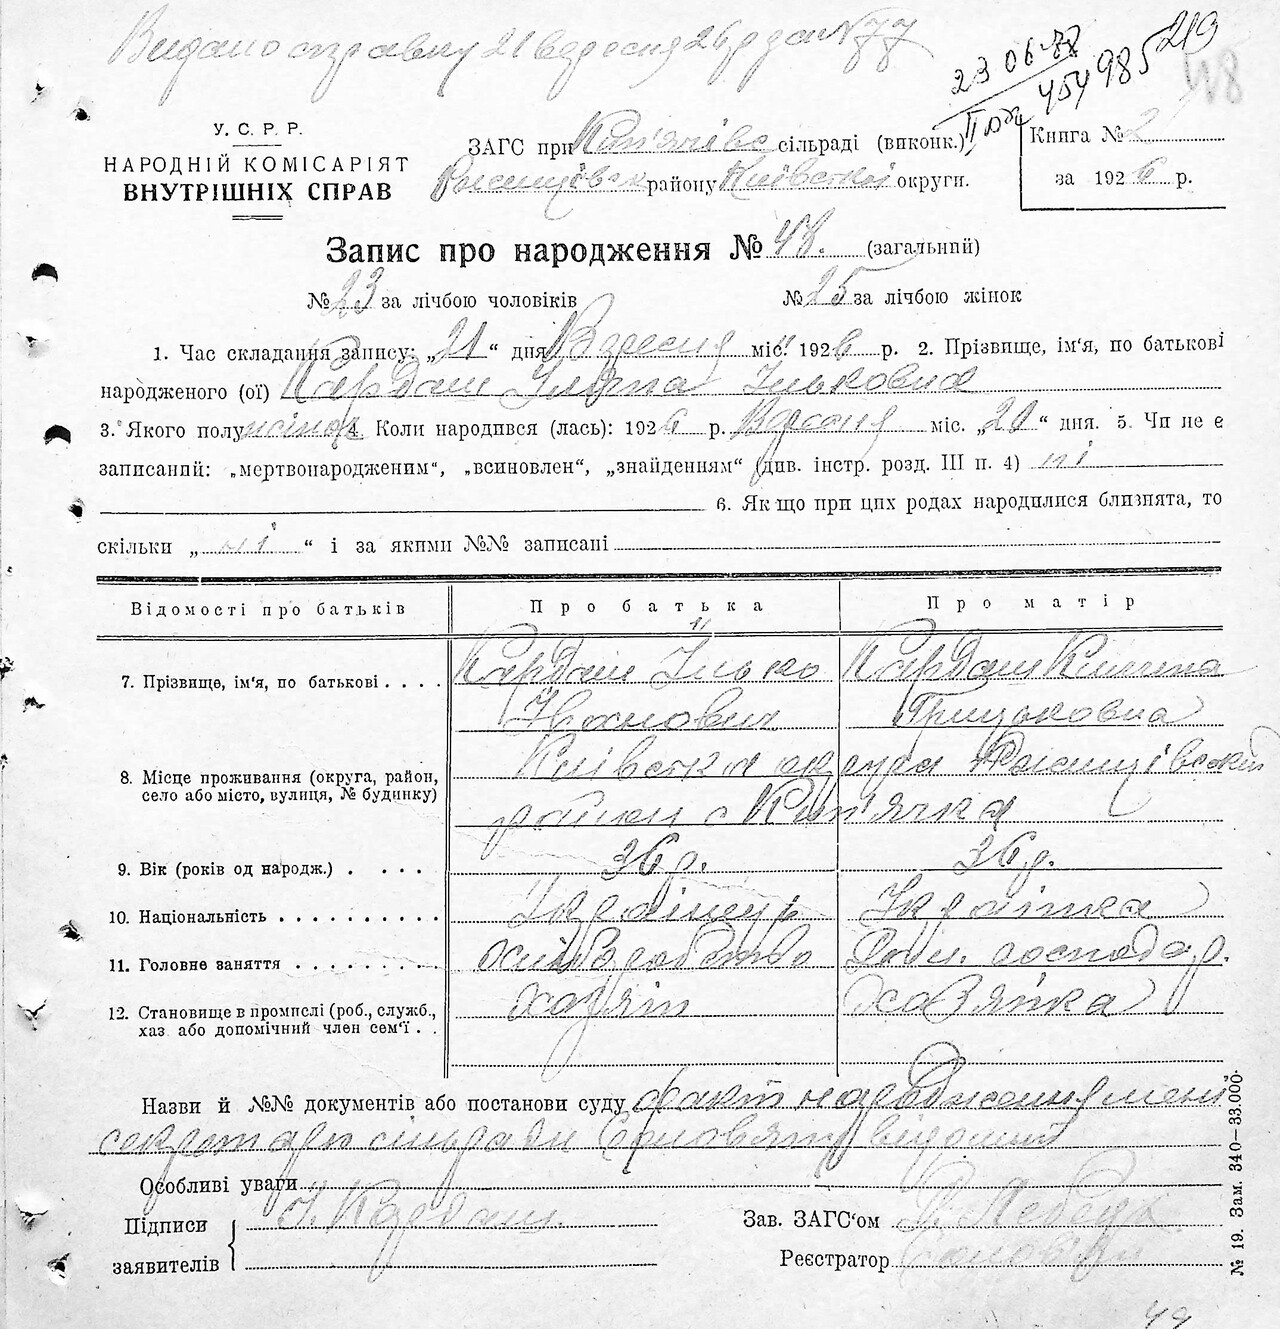 Видано справку 21 вересня 26 р за № 77
23 06 88
454985
219
У. С. Р. Р.
НАРОДНІЙ КОМІСАРІЯТ
ВНУТРІШНІХ СПРАВ
ЗАГС при Кип'ячівс сільраді (виконк.)
Ржищівськ району Київської округи.
Книга № 2
за 1926 р.
Запис про народження № 48. (загальний)
№ 23 за лічбою чоловіків № 25 за лічбою жінок
1. Час складання запису: „21“ дня Вересня міс. 1926 р. 2. Прізвище, ім'я, по батькові
народженого (ої) Кардаш Уляна Ільковна
3. Якого полу жіноч 4. Коли народився (лась): 1926 р. Вересня міс. „20“ дня. 5. Чи не є
записаний: „мертвонародженим“, „всиновлен“, „знайденням“ (див. інстр. розд. III п. 4) ні
6. Якщо при цих родах народилися близнята, то
скільки „ні“ і за якими №№ записані
Відомості про батьків Про батька Про матір
7. Прізвище, ім'я, по батькові . . . . Кардаш Ілько Кардаш Килина
Іванович Грицьковна
8. Місце проживання (округа, район, Київська округа Ржищівський
село або місто, вулиця, № будинку) район с Кип'ячка
9. Вік (років од народж.) . . . . 36 р. 36 р.
10. Національність . . . . . . . . . . Українець Українка
11. Головне заняття . . . . . . . . Хліборобство Дом. господар.
12. Становище в промислі (роб., служб., Хазяїн Хазяйка
хаз або допомічний член сем'ї . .
Назви й №№ документів або постанови суду факт народження мені
секретарю сільради відомий
Особливі уваги
Підписи І. Кардаш. Зав. ЗАГС'ом
заявителів Реєстратор
№ 19. Зам. 340—33.000.
49